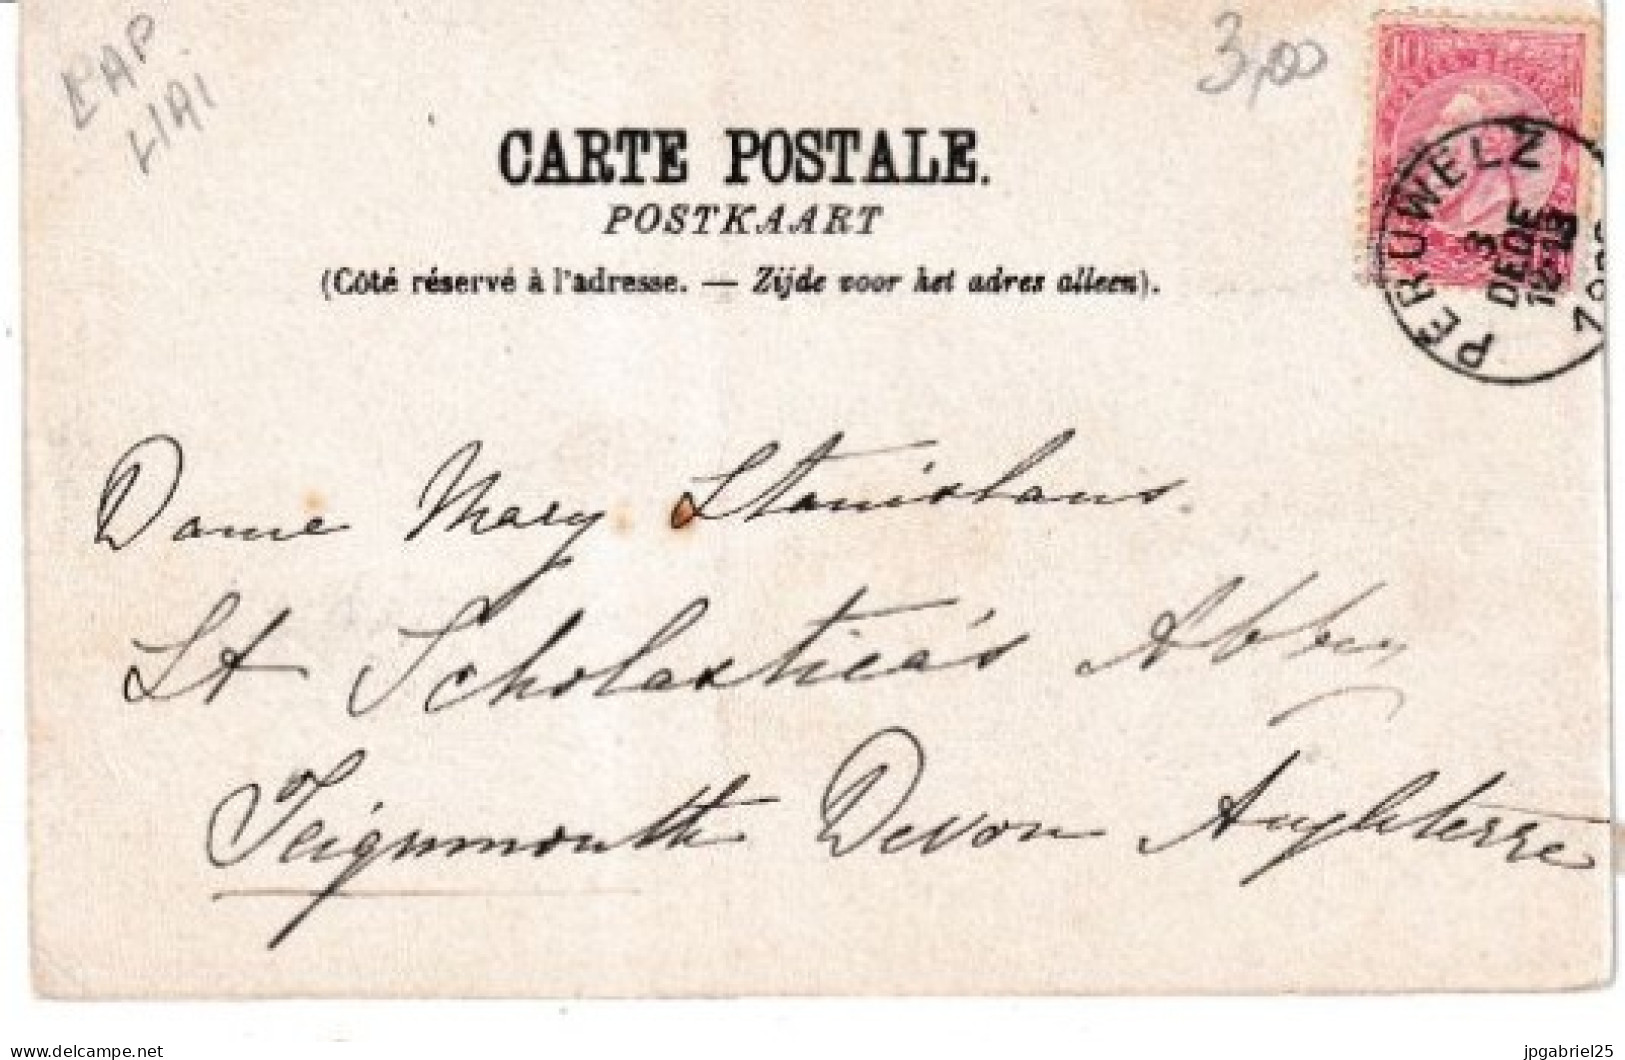 3,00
CARTE POSTALE.
POSTKAART
(Côté réservé à l'adresse. — Zijde voor het adres alleen).
PÉRUWELZ
3
DÉDE
12-13
Dame Mary Stanislaus.
St Scholastica's Abbey
Teignmouth Devon Angleterre
delcampe.net
jpgabriel25